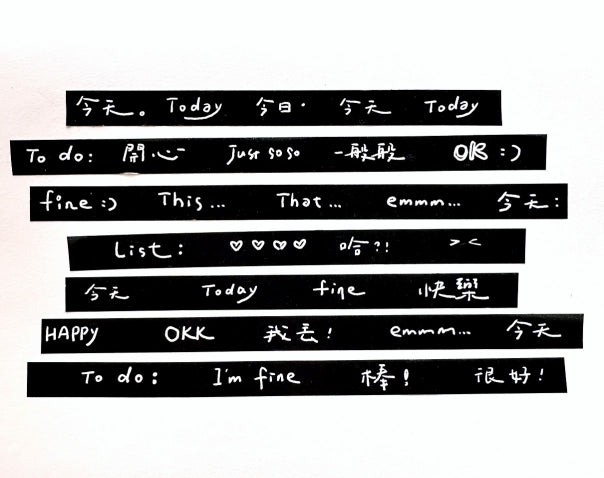 今天。 Today 今日· 今天 Today
To do: 開心 Just so so 一般般 OK :)
fine :) This... That... emmm... 今天:
List: ♡ ♡ ♡ ♡ 哈?! > <
今天 Today fine 快樂
HAPPY OKK 我丟! emmm... 今天
To do: I'm fine 棒! 很好!